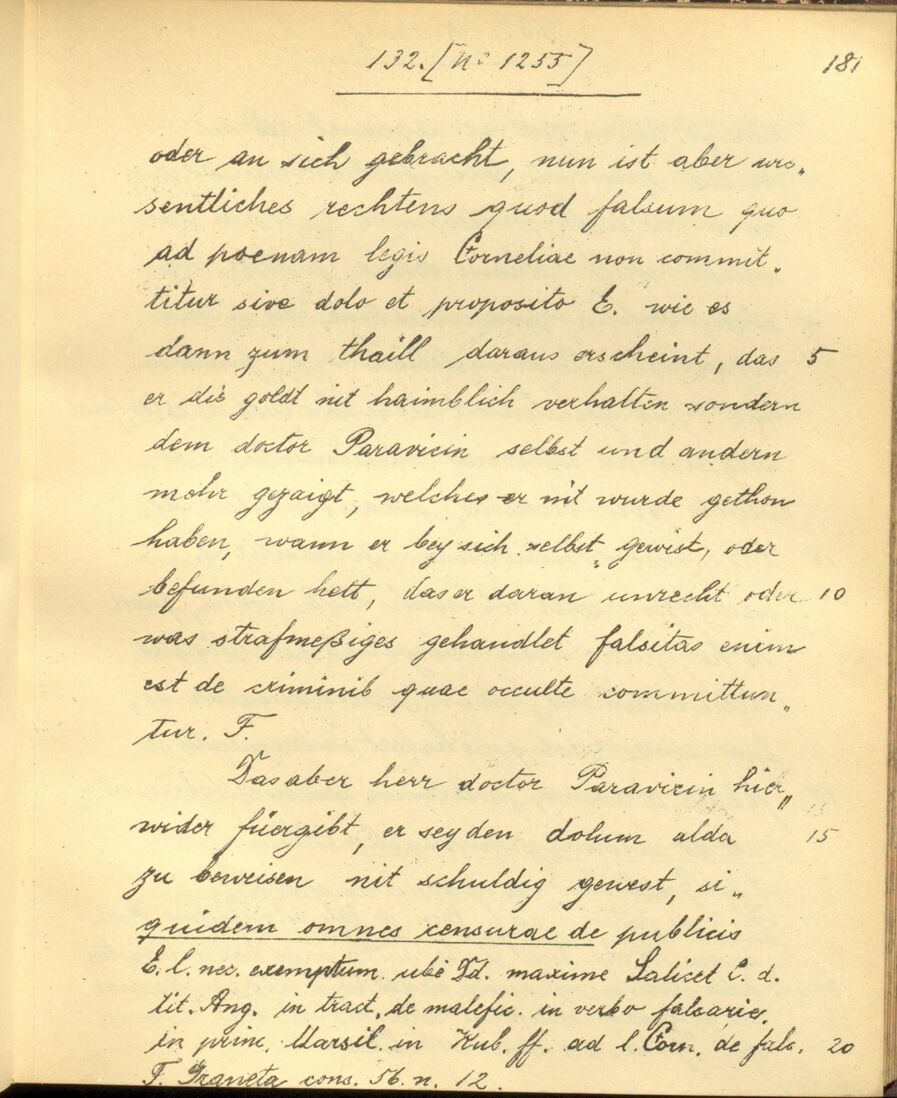 132. [No 1255]
181
oder an sich gebracht, nun ist aber we„
sentliches rechtens quod falsum quo
ad poenam legis Corneliae non commit„
titur sive dolo et proposito E. wie es
dann zum thaill daraus erscheint, das 5
er die goldt nit haimblich verhalten sondern
dem doctor Paravicin selbst und andern
mehr gezaigt, welches er nit wurde gethon
haben, wann er bey sich selbst gewist, oder
befunden hett, das er daran unrecht oder 10
was strafmeßiges gehandlet falsitas enim
est de criminib quae occulte committun„
tur. F.
Das aber herr doctor Paravicin hier„
wider füergibt, er sey den dolum alda 15
zu beweisen nit schuldig gewest, si„
quidem omnes censurae de publicis
E. l. nec. exemptum ubi Dd. maxime Salicet C. d.
tit. Ang. in tract. de malefic. in verbo falsarie.
in princ. Marsil. in Rub. ff. ad l. Corn. de fals. 20
F. Graveta cons. 56. n. 12.